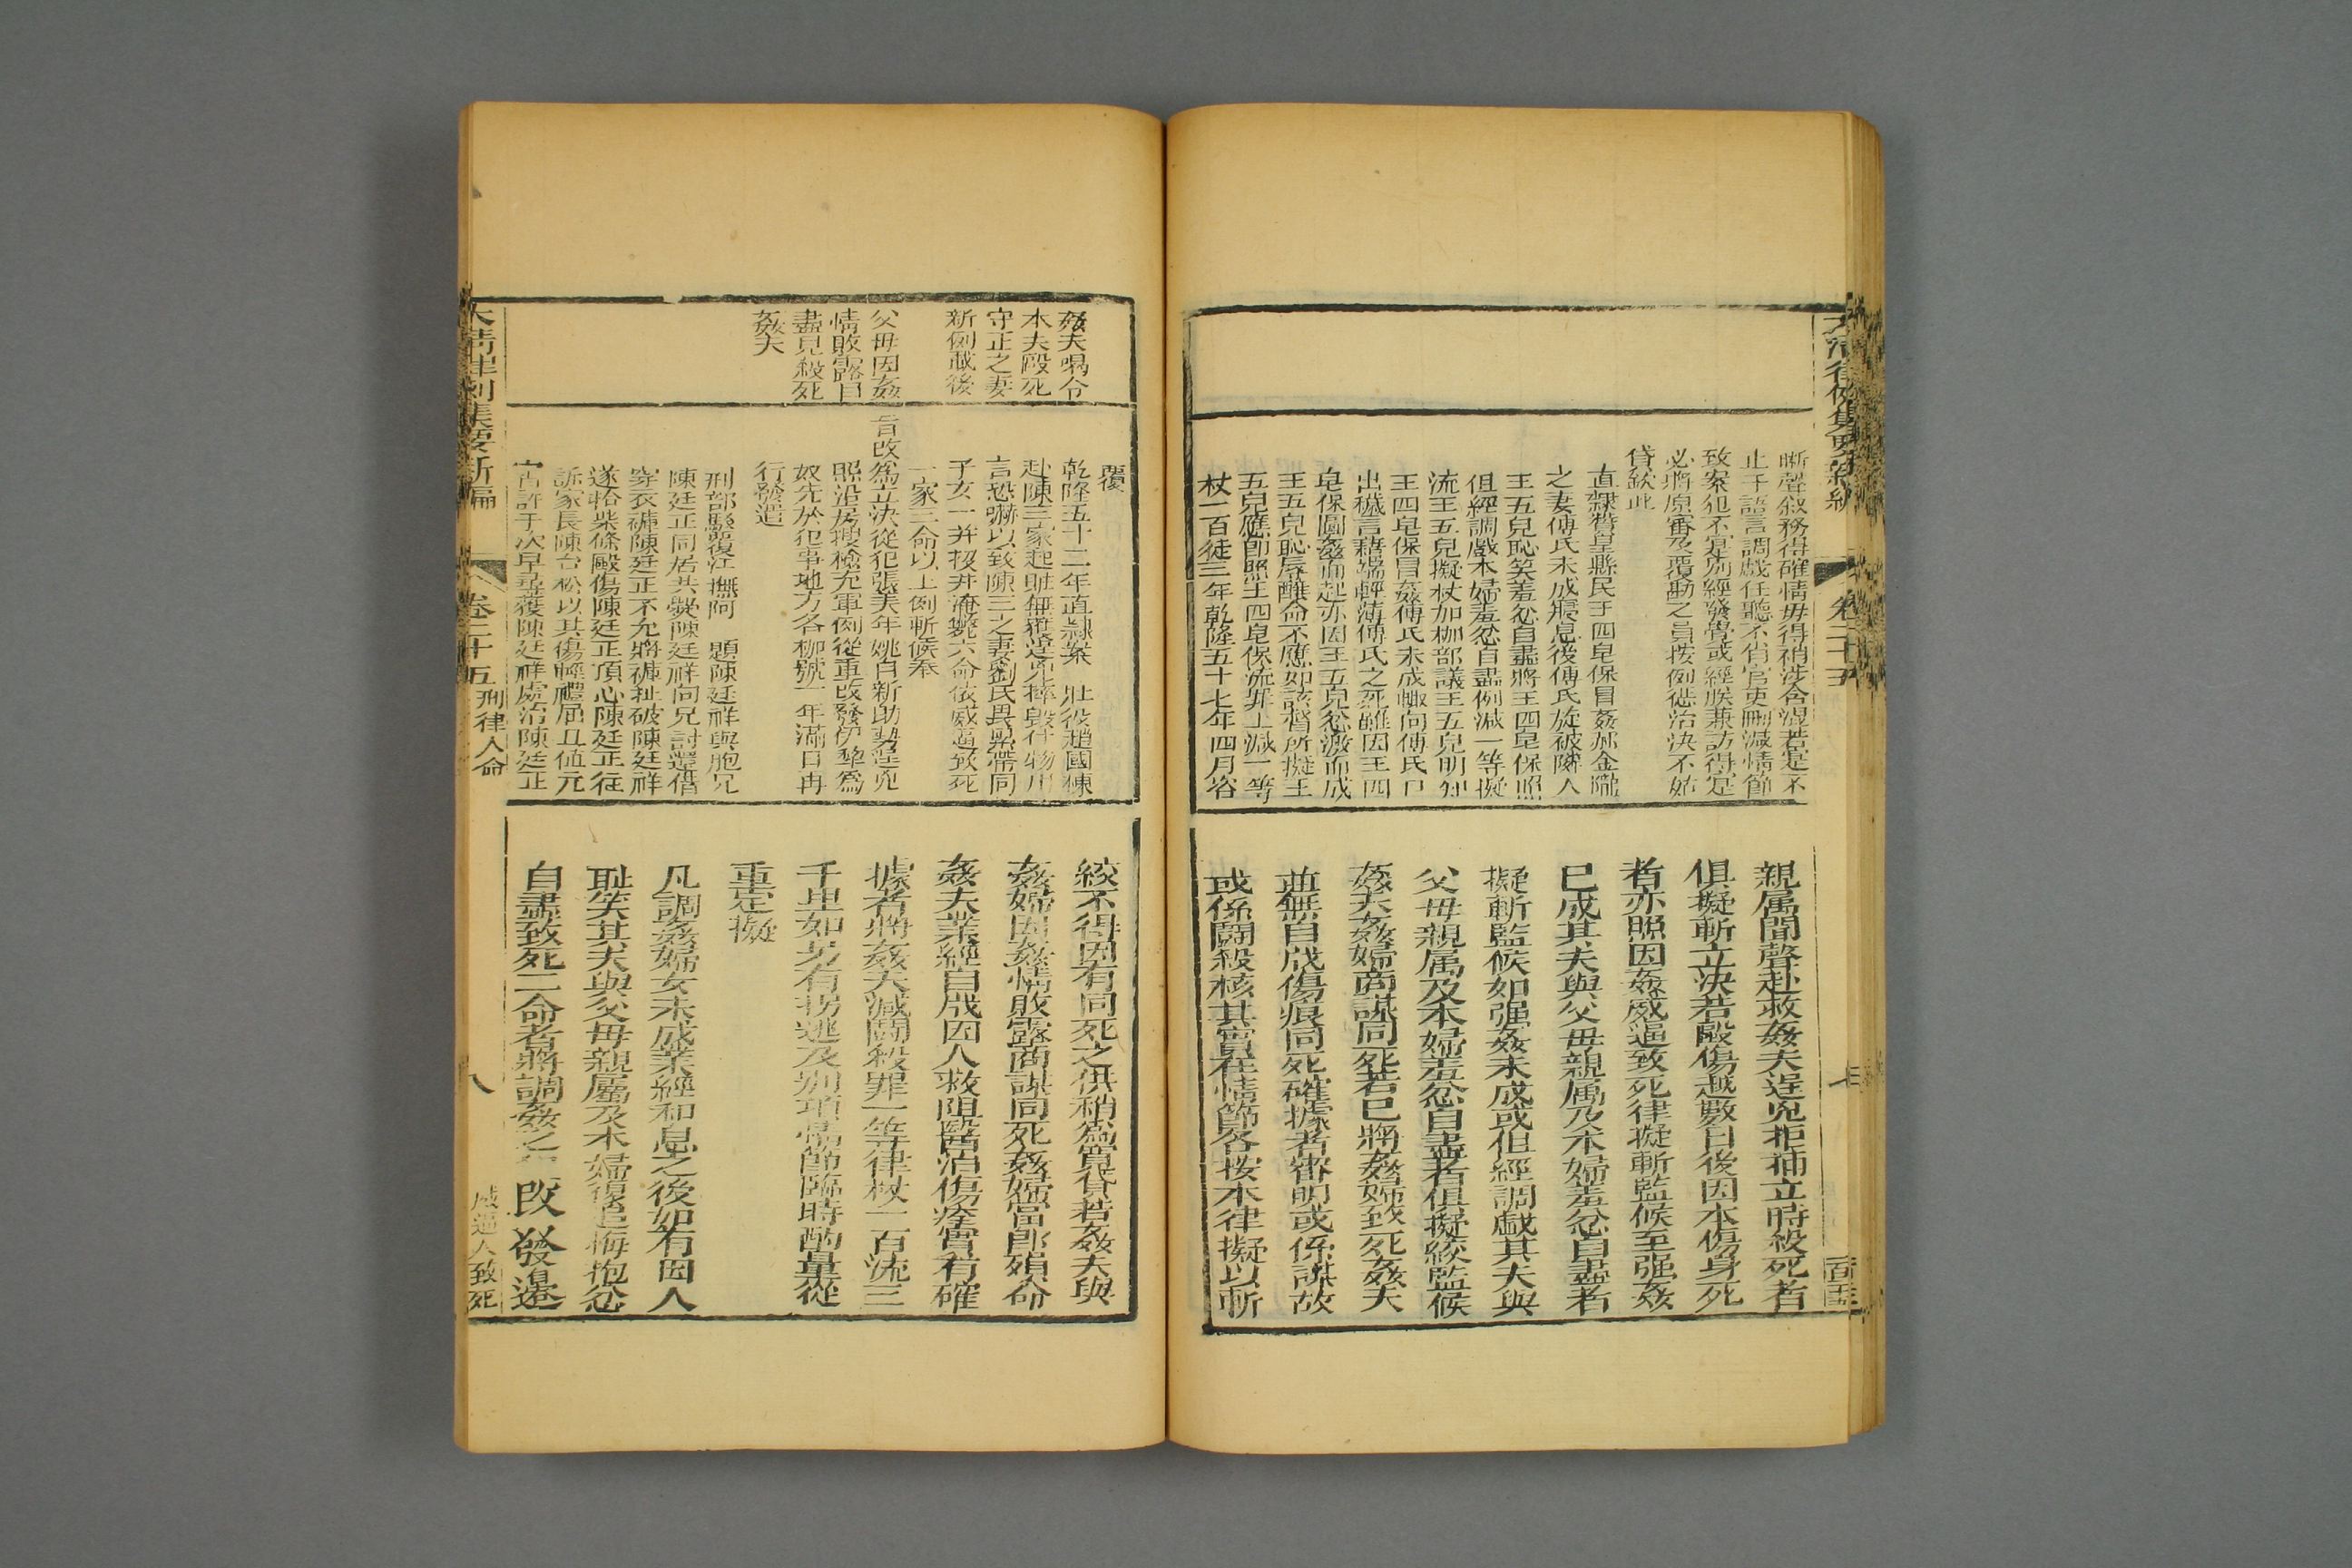 嘶聲敘務得確情毋得稍涉含混若寔不
止于語言調戲任聽不肖官吏刪減情節
致案犯不寔別經發覺或經朕兼訪得寔
必將原審及覆勘之員按例懲治決不姑
貸欽此
直隸贊皇縣民王四皂保冒姦郝金隴
之妻傅氏未成寢息後傅氏旋被隣人
王五兒恥笑羞忿自盡將王四皂保照
但經調戲本婦羞忿自盡例減一等擬
流王五兒擬杖加枷部議王五兒明知
王四皂保冒姦傅氏未成輙向傅氏口
出穢言藉端輕薄傅氏之死雖因王四
皂保圖姦而起亦因王五兒忿激而成
王五兒恥辱釀命不應如該督所擬王
五兒應卽照王四皂保流罪上減一等
杖一百徒三年乾隆五十七年四月咨
親属聞聲赴救姦夫逞兇拒捕立時殺死者
俱擬斬立決若毆傷越數日後因本傷身死
者亦照因姦威逼致死律擬斬監候至强姦
已成其夫與父母親属及本婦羞忿自盡者
擬斬監候如强姦未成或但經調戲其夫與
父母親属及本婦羞忿自盡者俱擬絞監候
姦夫姦婦商謀同死若已將姦婦致死姦夫
並無自戕傷痕同死確據者審明或係謀故
或係鬪殺核其實在情節各按本律擬以斬
大清律例集要新編
卷二十五
七
姦夫喝令
本夫毆死
守正之妻
新例載後
父母因姦
情敗露自
盡見殺死
姦夫
覆
乾隆五十二年直隸案 壯役趙國棟
赴陳三家起賍無獲逞兇摔毀什物用
言恐嚇以致陳三之妻劉氏畏累帶同
子女一并投井淹斃六命依威逼致死
一家三命以上例斬候奉
旨改爲立決從犯張美年姚自新助勢逞兇
照沿房搜檢充軍例從重改發伊犂爲
奴先於犯事地方各枷號一年滿日再
行發遣
刑部駁覆江撫阿 題陳廷祥與胞兄
陳廷正同居共爨陳廷祥向兄討還借
穿衣褲陳廷正不允將褲扯破陳廷祥
遂拾柴條毆傷陳廷正頂心陳廷正往
訴家長陳台松以其傷輕禮屈且值元
宵許于次早尋獲陳廷祥處治陳廷正
絞不得因有同死之供稍爲寬貸若姦夫與
姦婦因姦情敗露商謀同死姦婦當卽殞命
姦夫業經自戕因人救阻醫治傷痊實有確
據者將姦夫減鬪殺罪一等律杖一百流三
千里如另有拐逃及別項情節臨時酌量從
重定擬
凡調姦婦女未成業經和息之後如有因人
恥笑其夫與父母親屬及本婦復追悔抱忿
自盡致死二命者將調姦之 改發邊
大清律例集要新編
卷二十五
刑律人命
八
威逼人致死